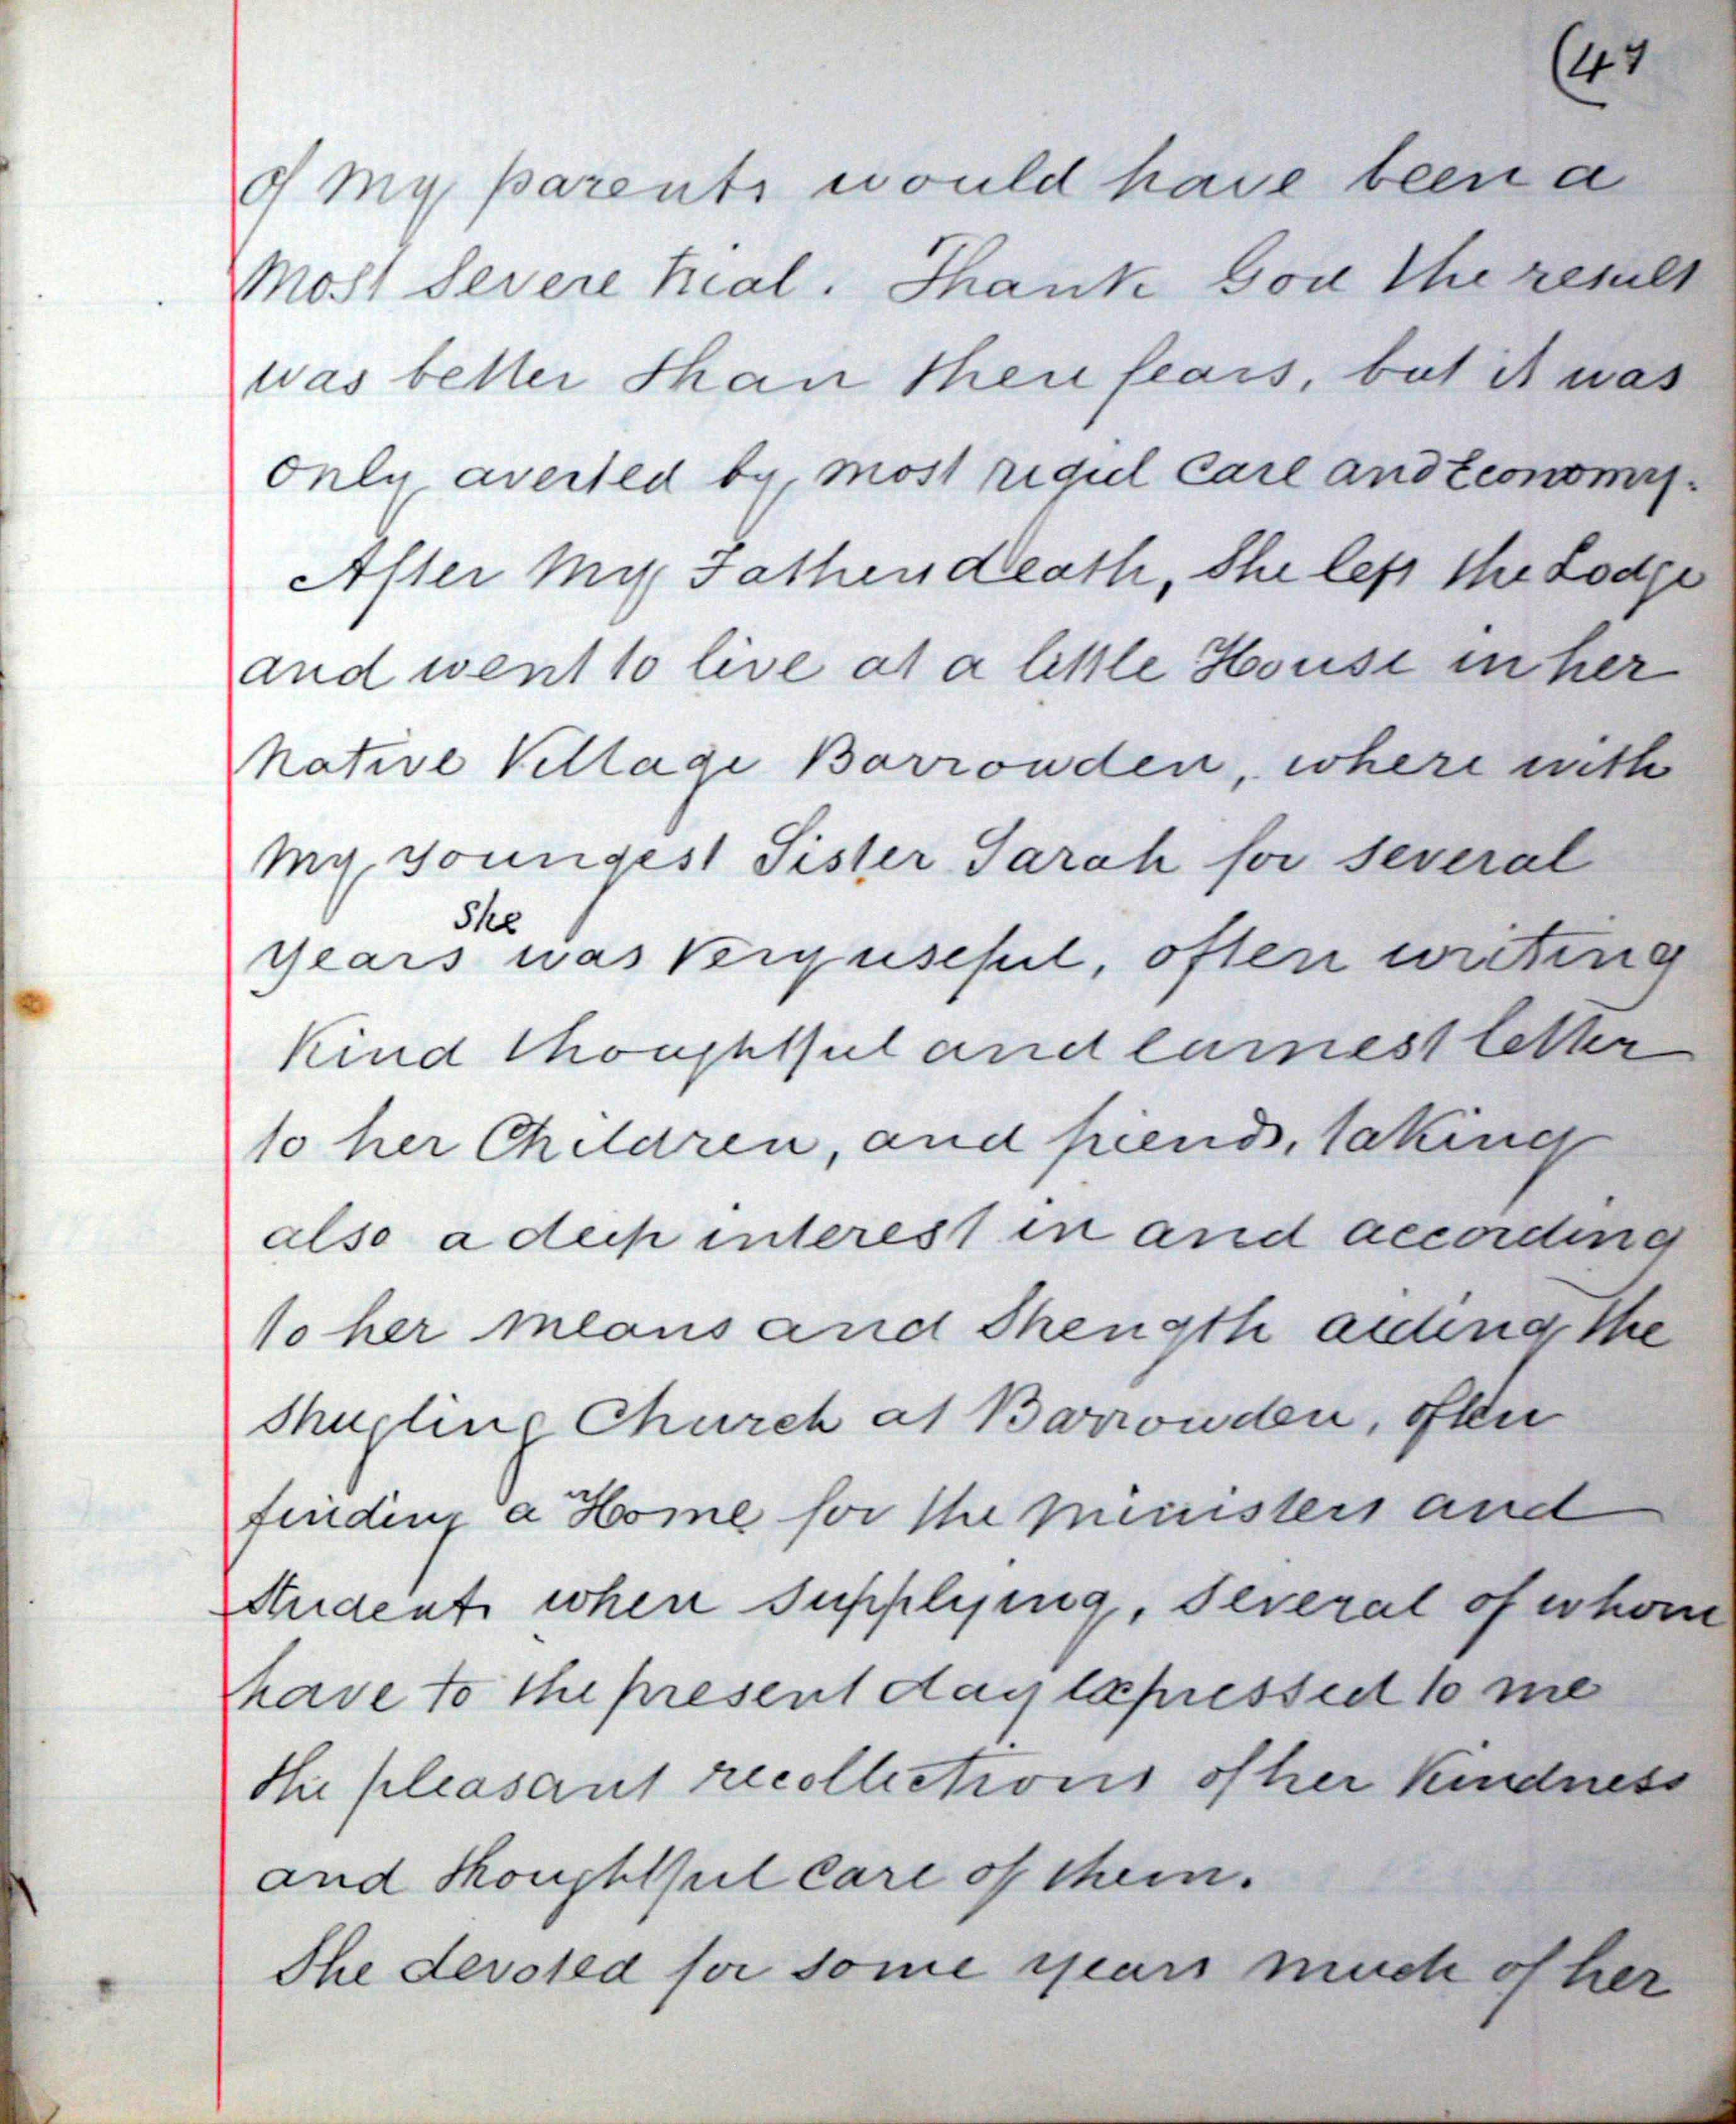 (47
of my parents would have been a
most severe trial. Thank God the result
was better than their fears, but it was
only averted by most rigid care and Economy.
After my Fathers death, She left the Lodge
and went to live at a little House in her
native Village Barrowden, where with
my youngest Sister Sarah for several
she
years was very useful, often writing
Kind thoughtful and earnest letter
to her Children, and friends, taking
also a deep interest in and according
to her means and Strength aiding the
Strugling Church at Barrowden, often
finding a Home for the ministers and
Students when supplying, several of whom
have to the present day expressed to me
the pleasant recollections of her Kindness
and thoughtful care of them.
She devoted for some years much of her